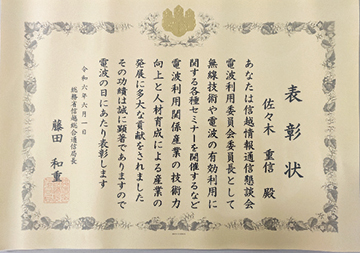 表彰状
佐々木 重信 殿
あなたは信越情報通信懇談会
電波利用委員会委員長として
無線技術や電波の有効利用に
関する各種セミナーを開催するなど
電波利用関係産業の技術力
向上と人材育成による産業の
発展に多大な貢献をされました
その功績は誠に顕著でありますので
電波の日にあたり表彰します
令和六年六月一日
総務省信越総合通信局長
藤田 和重